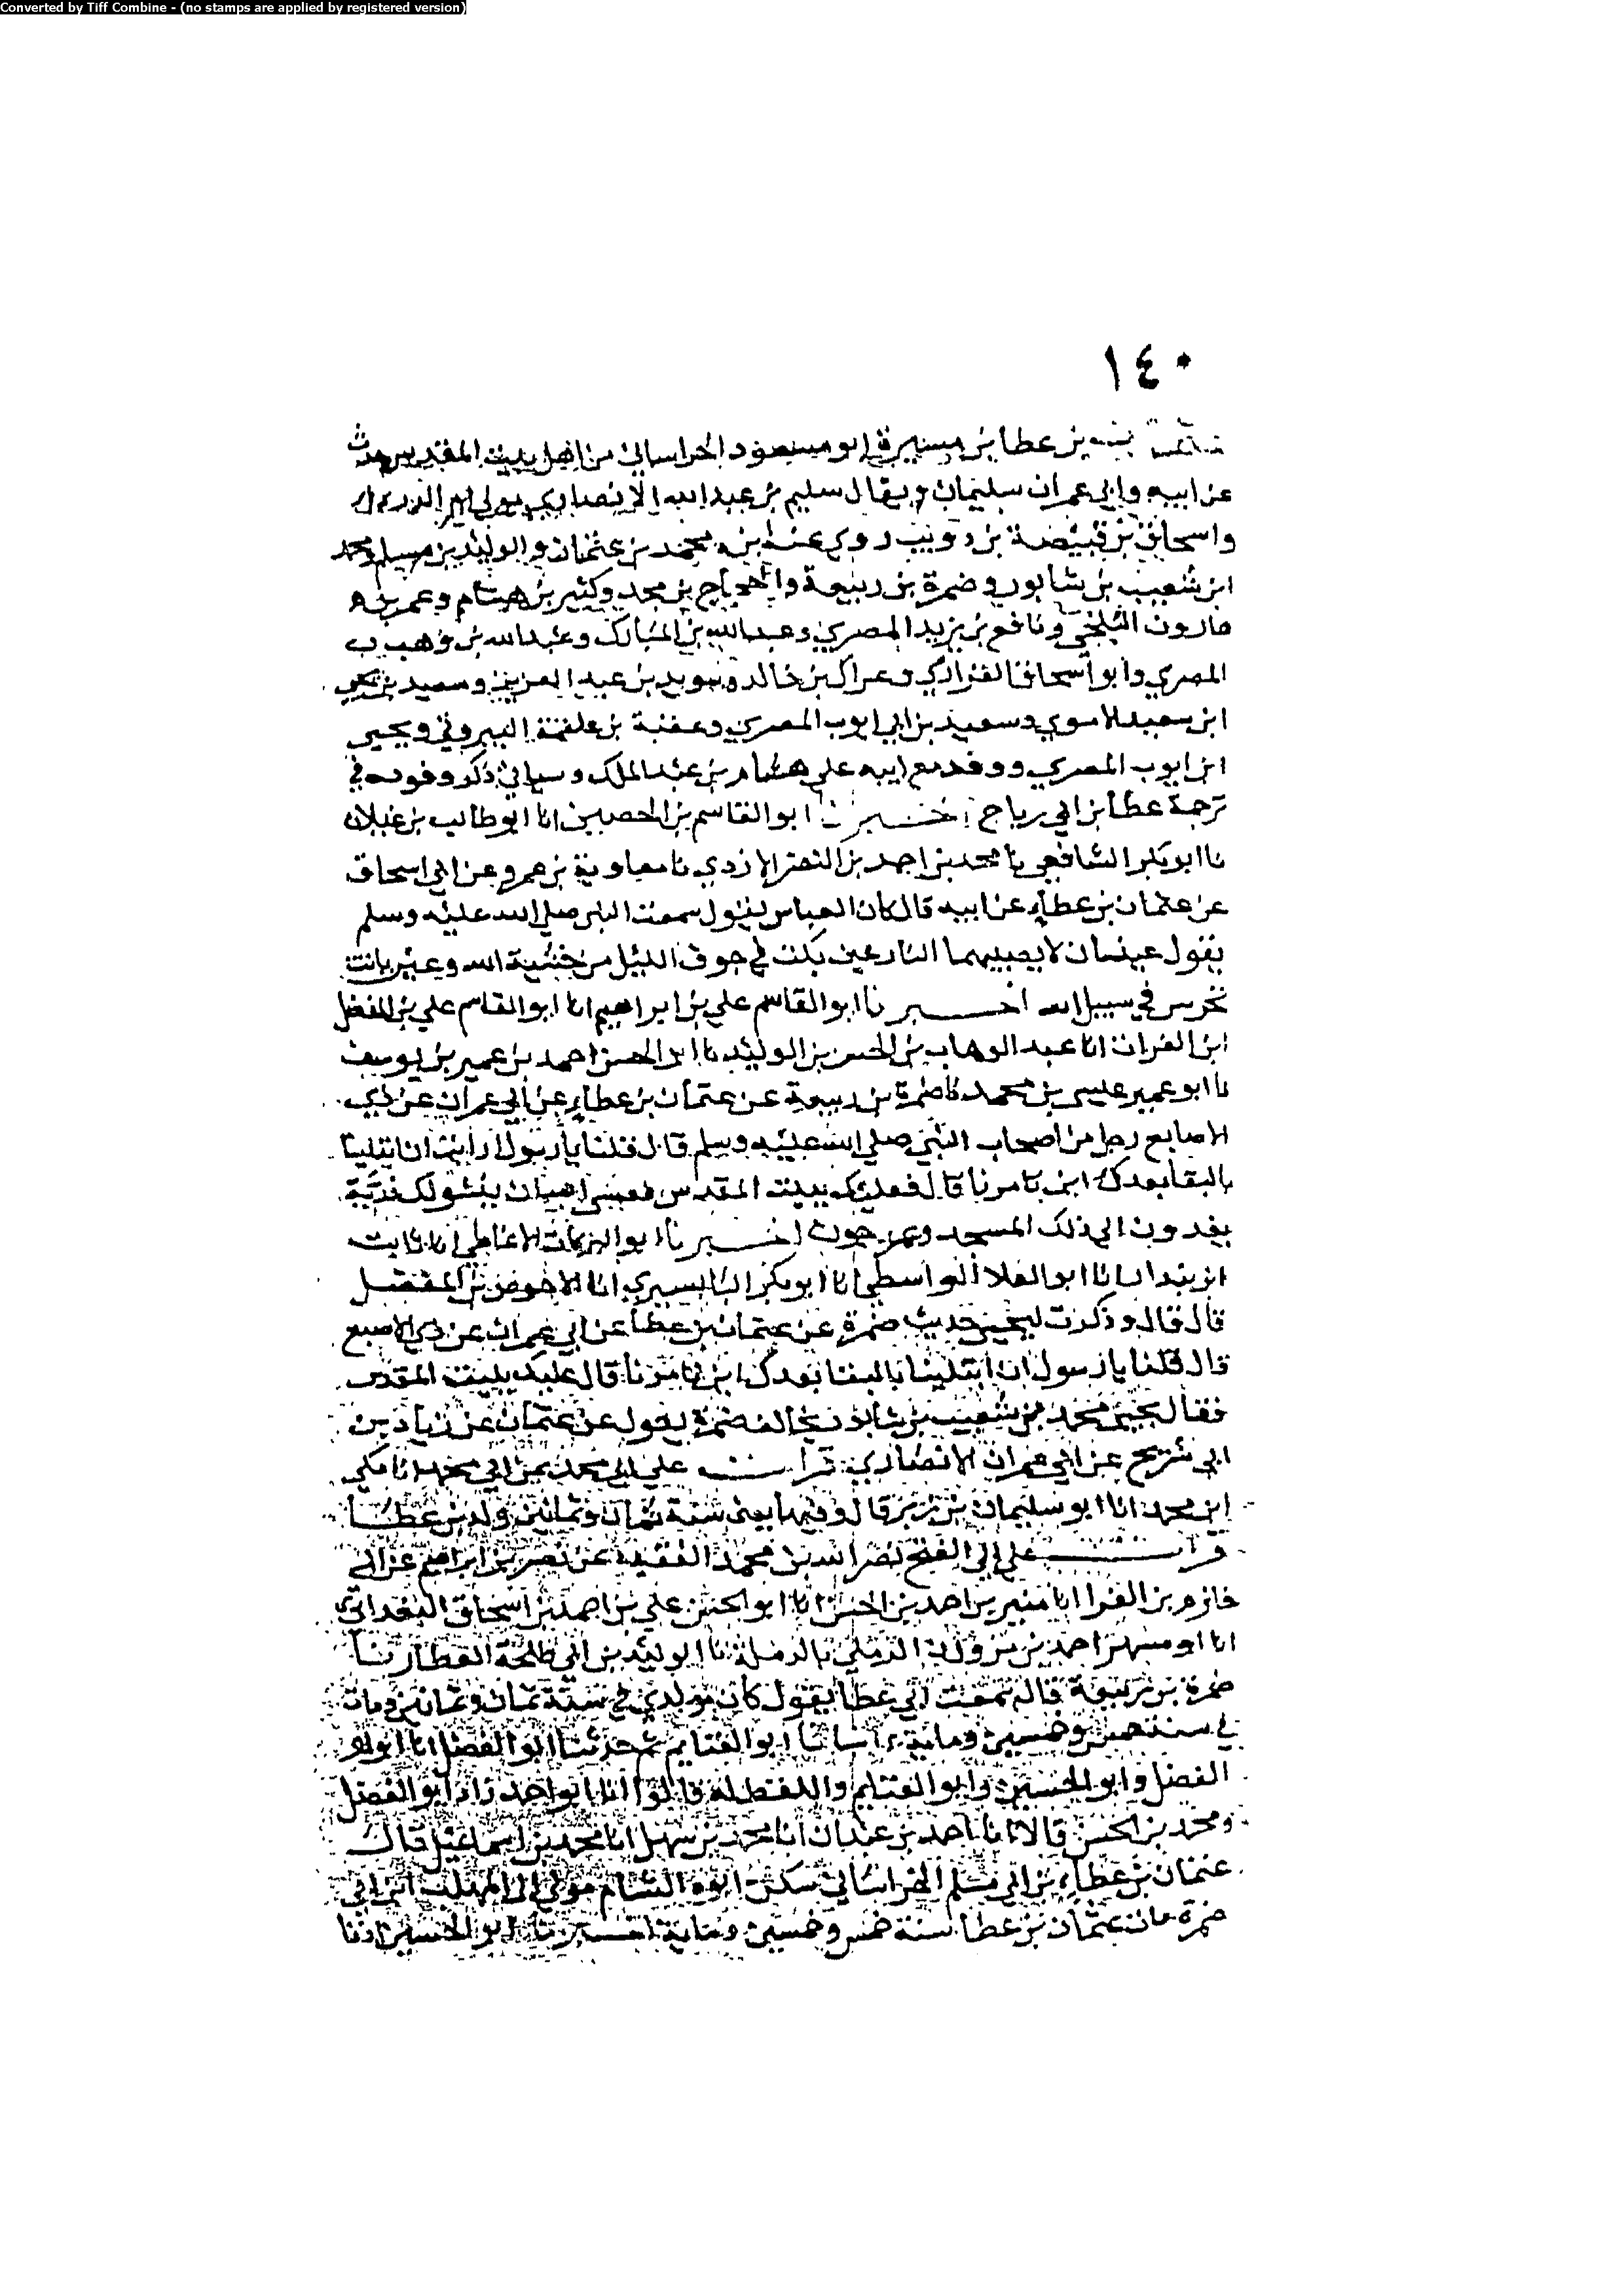 Converted by Tiff Combine - (no stamps are applied by registered version)
١٤٠
بن عطا بن ميسرة ابو مسعود الخراساني من اهل بيت المقدس حدث
عن ابيه وابي عمران سليمان ويقال سليم بن عبد الله الانصاري مولى ام الدرداء
واسحاق بن قبيصة بن ذويب روى عنه ابنه محمد بن عثمان والوليد بن مسلم ومحمد
ابن شعيب بن شابور وضمرة بن ربيعة والحجاج بن محمد وكثير بن هشام وعمر بن
هارون البلخي ونافع بن يزيد المصري وعبد الله بن المبارك وعبد الله بن وهب
المصري وابو اسحاق الفزاري وعراك بن خالد وسويد بن عبد العزيز وسعيد بن يحيى
ابن سعيد الاموي وسعيد بن ابي ايوب المصري وعقبة بن علقمة البيروتي ويحيى
ابن ايوب المصري ووفد مع ابيه على هشام بن عبد الملك وسياتي ذكر وفوده في
ترجمة عطا بن ابي رباح اخبرنا ابو القاسم بن الحصين انا ابو طالب بن غيلان
نا ابو بكر الشافعي نا محمد بن احمد بن النضر الازدي نا معاوية بن عمرو عن ابي اسحاق
عن عثمان بن عطاء عن ابيه قال كان العباس يقول سمعت النبي صلى الله عليه وسلم
يقول عينان لا يصيبهما النار عين بكت في جوف الليل من خشية الله وعين باتت
تحرس في سبيل الله اخبرنا ابو القاسم علي بن ابراهيم انا ابو القاسم علي بن الفضل
ابن الفرات انا عبد الوهاب بن الحسن بن الوليد نا ابو الحسن احمد بن عمير بن يوسف
نا ابو عمير عيسى بن محمد نا ضمرة بن ربيعة عن عثمان بن عطاء عن ابي عمران عن ذي
الاصابع رجل من اصحاب النبي صلى الله عليه وسلم قال قلنا يا رسول ارايت ان ابتلينا
بالبقا بعدك اين تامرنا قال فعليك ببيت المقدس فعسى ان ينشو لك ذرية
يغدون الى ذلك المسجد ويروحون اخبرنا ابو البركات الانماطي انا ثابت
ابن بندار انا ابو العلا الواسطي انا ابو بكر البابسيري انا الاحوص بن المفضل
قال قال وذكرت ليحيى حديث ضمرة عن عثمان بن عطا عن ابي عمران عن ذي الاصبع
قال قلنا يا رسول ان ابتلينا بالبقا بعدك اين تامرنا قال عليك ببيت المقدس
فقال يحيى محمد بن شعيب بن شابور يخالف ضمرة يقول عن عثمان عن زياد بن
ابي عن ابي عمران الانصاري قرات على ابي محمد عن ابي محمد انا مكي
ابن محمد انا ابو سليمان بن زبر قال وفيها يعني سنة ثمان وثمانين ولد بن عطا
قرات على ابي الفتح نصر الله بن محمد الفقيه عن نصر بن ابراهيم عن ابي
خازم بن الفرا انا منير بن احمد بن الحسن انا ابو الحسن علي بن احمد بن اسحاق البغدادي
انا ابو مسهر احمد بن مروان الرملي بالرملة نا الوليد بن ابي طلحة العطار نا
ضمرة بن ربيعة قال سمعت ابن عطا يقول كان مولدي في سنة ثمان وثمانين ومات
في سنة خمس وخمسين ومايه انبانا ابو الغنايم ثم حدثنا ابو الفضل انا ابو
الفضل وابو الحسين وابو الغنايم واللفظ له قالوا انا ابو احمد زاد ابو الفضل
ومحمد بن الحسن قالا انا احمد بن عبدان انا محمد بن سهل انا محمد بن اسماعيل قال
عثمان بن عطاء بن ابي مسلم الخراساني سكن ابوه الشام مولى ال المهلب ابن ابي
ضمرة مات عثمان بن عطا سنة خمس وخمسين ومايه اخبرنا ابو الحسين اذنا